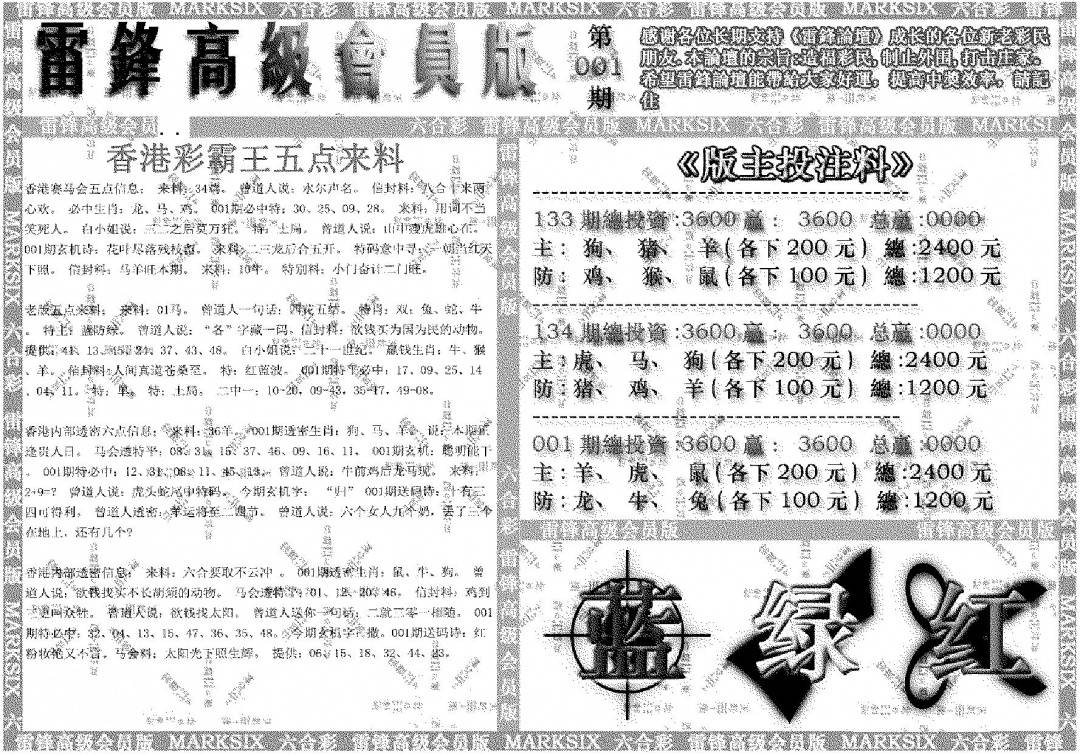 雷锋高级会员版 MARKSIX 六合彩 雷锋高级会员版 MARKSIX 六合彩 雷锋高级会员版
雷鋒高級會員版
第
001
期
感谢各位长期支持《雷鋒論壇》成长的各位新老彩民
朋友.本論壇的宗旨:造福彩民,制止外围,打击庄家。
希望雷鋒論壇能帶給大家好運，提高中獎效率，請記
住
雷锋高级会员 . .
六合彩 雷锋高级会员版 MARKSIX 六合彩 雷锋高级会员版 MARKSI
香港彩霸王五点来料
香港赛马会五点信息： 来料：34 曾道人说：水尔声名。 信封料：八合十来两
心欢。 必中生肖：龙、马、鸡。 001期必中特：30、25、09、28。 来料：用词不当
笑死人。 白小姐说：三二之后莫万死。 特：土局。 曾道人说：山中 虎雄心在。
001期玄机诗：花叶尽落残枝 。 来料：二三龙后合五开。 特码意中寻： 朝当红天
下照。 信封料：马羊旺本期。 来料：10羊。 特别料：小门奋计二门旺。
老版五点来料： 来料：01马。 曾道人一句话：四花五结。 特肖：双：兔、蛇、牛
。 特土：蓝防绿。 曾道人说：“名”字藏一码。信封料：欲钱买为国为民的动物。
提供：41、13、45、24、37、43、48。 白小姐说：二十一世纪。 赢钱生肖：牛、猴
、羊。 信封料：人间真道苍桑至。 特：红蓝波。 001期特平必中：17、09、25、14
、04、11。 特：单。 特：土局。 二中一：10-20，09-43，35-17，49-08。
香港内部透密六点信息： 来料：36羊。 001期透密生肖：狗、马、羊。 说：本期正
逢贵人日。 马会透特平：08、31、15、37、46、09、16、11。 001期玄机：聪明能干
。 001期特必中：12、31、08、11、45、13。 曾道人说：牛前鸡后龙马现。 来料：
2+9=？ 曾道人说：虎头蛇尾中特码。 今期玄机字： “归” 001期送码诗：十有三
四可得利。 曾道人透密：羊运将至二四节。 曾道人说：六个女人九个奶，丢了三个
在地上，还有几个？
香港内部透密信息： 来料：六合要取不云冲 。 001期透密生肖：鼠、牛、狗。 曾
道人说：欲钱找买不长胡须的动物。 马会透特平：01、12、20、46。 信封料：鸡到
三更叫众牲。 曾道人说：欲钱找太阳。 曾道人送你一句话：二就三零一相随。 001
期特必中：32、04、13、15、47、36、35、48。 今期玄机字：撒。001期送码诗：红
粉妆艳又不言。马会料：太阳光下照生辉。 提供：06、15、18、32、44、23。
《版主投注料》
133 期總投資:3600 赢： 3600 总赢:0000
主：狗、 猪、 羊(各下 200 元) 總:2400 元
防：鸡、 猴、 鼠(各下 100 元) 總:1200 元
134 期總投資:3600 赢： 3600 总赢:0000
主：虎、 马、 狗(各下 200 元) 總:2400 元
防：猪、 鸡、 羊(各下 100 元) 總:1200 元
001 期總投資:3600 赢： 3600 总赢:0000
主：羊、虎、 鼠(各下 200 元) 總:2400 元
防：龙、牛、 兔(各下 100 元) 總:1200 元
雷锋高级会员版
雷锋高级会员版
蓝 绿 红
雷锋高级会员版 MARKSIX 六合彩 雷锋高级会员版 MARKSIX 六合彩 雷锋高级会员版